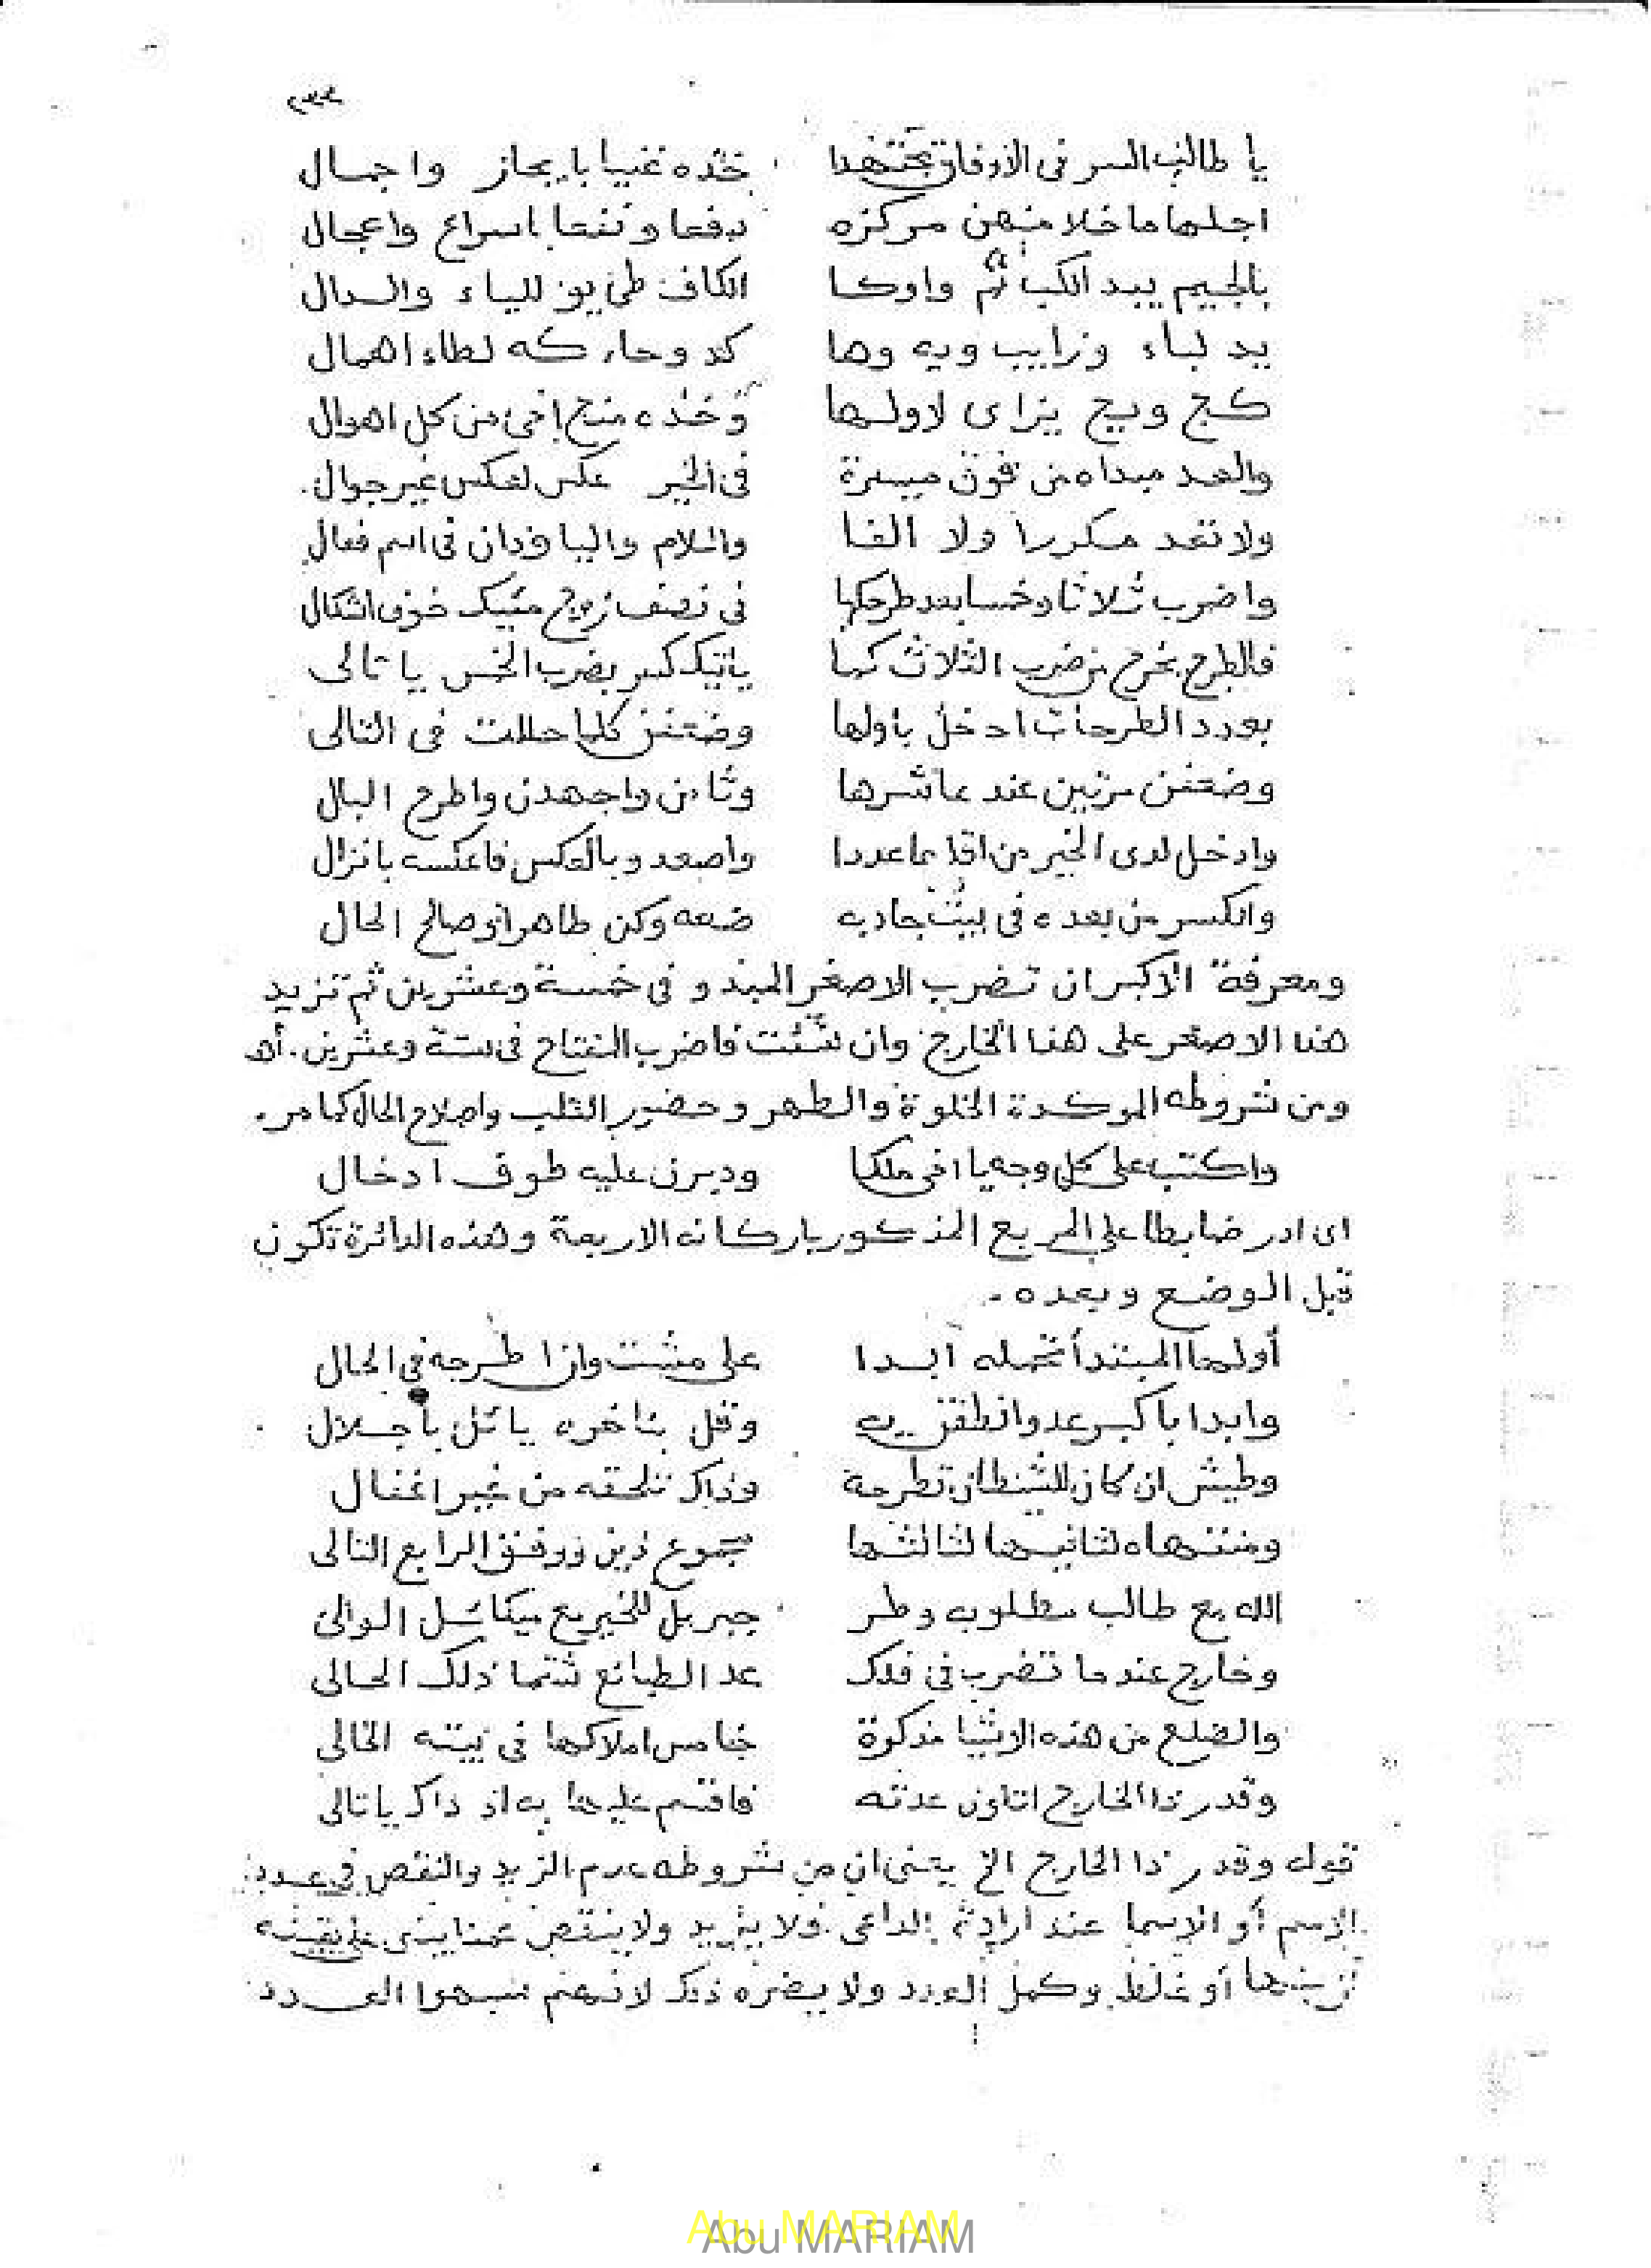 ٢٣٣
يا طالب السر فى الاوفاق مجتهدا خذه غنيا بايجاز واجمال
اجلها ما خلا منهن مركزه دفعا ونفعا باسراع واعجال
بالجيم يبد الكب ثم واوكا الكاف طى يوز للياء والدال
يد لباء وزايب ويه وها كد وحاء كه لطاء اهمال
كج ويح يزاى لاولها وخذه منج اخى من كل اهوال
والعد مبداه من فوق ميسرة فى الخير عكس لعكس غير جوال
ولا تعد مكررا ولا الفا واللام واليا وذان فى اسم فعال
واضرب ثلاثا وخمسا بعد طرحكها فى نصف زوج خوف اشكال
فالطرح يخرج من ضرب الثلاث كما ياتيك كسر بضرب الخمس يا تالى
بعدد الطرحات ادخل باولها وضعفن كلما حللت فى التالى
وضعفن مرتين عند عاشرها وثامن واجهدن واطرح البال
وادخل لدى الخير من اقلها عددا واصعد وبالعكس فاعكسه بانزال
والكسر من بعده فى بيت حاديه ضعه وكن طاهرا وصالح الحال
ومعرفة الاكبر ان تضرب الاصغر المبدو فى خمسة وعشرين ثم تزيد
هذا الاصغر على هذا الخارج وان شئت فاضرب المفتاح فى ستة وعشرين . أهـ
ومن شروطه الموكدة الخلوة والطهر وحضور القلب واصلاح الحال كما مر .
واكتب على كل وجه يا اخى ملكا وديرن عليه طوق ادخال
اى ادر ضابطا على المربع المذكور باركانه الاربعة وهذه الدائرة تكون
قبل الوضع وبعده .
أولها المبتدأ تحمله ابدا على مشت وان طرحه فى الحال
وابدا باكبر عد وانطقن به وقل بئاخره يائل باجلال
وطيش ان كان للشيطان تطرحة وذاك تلحقه من غير اغفال
ومنتهاه لثانيها لثالثها مجموع ذين ووفق الرابع التالى
الله مع طالب مطلوب وطر جبريل للخير مع ميكائل الوالى
وخارج عندما تضرب فى فلك عد الطبائع ثتما ذلك الحالى
والضلع من هذه الاشيا مذكرة خامس املاكها فى بيته الخالى
وقدر ذا الخارج اتلون عدته فاقسم عليها به اذ ذاك يا تالى
قوله وقدر ذا الخارج الخ يعنى ان من شروطه عدم الزيد والنقص فى عدد
الاسم أو الاسما عند ارادة الداعى فلا يزيد ولا ينقص
أو غلط وكمل العدد ولا يضره ذلك لانهم شبهوا العدد
Abu MARIAM